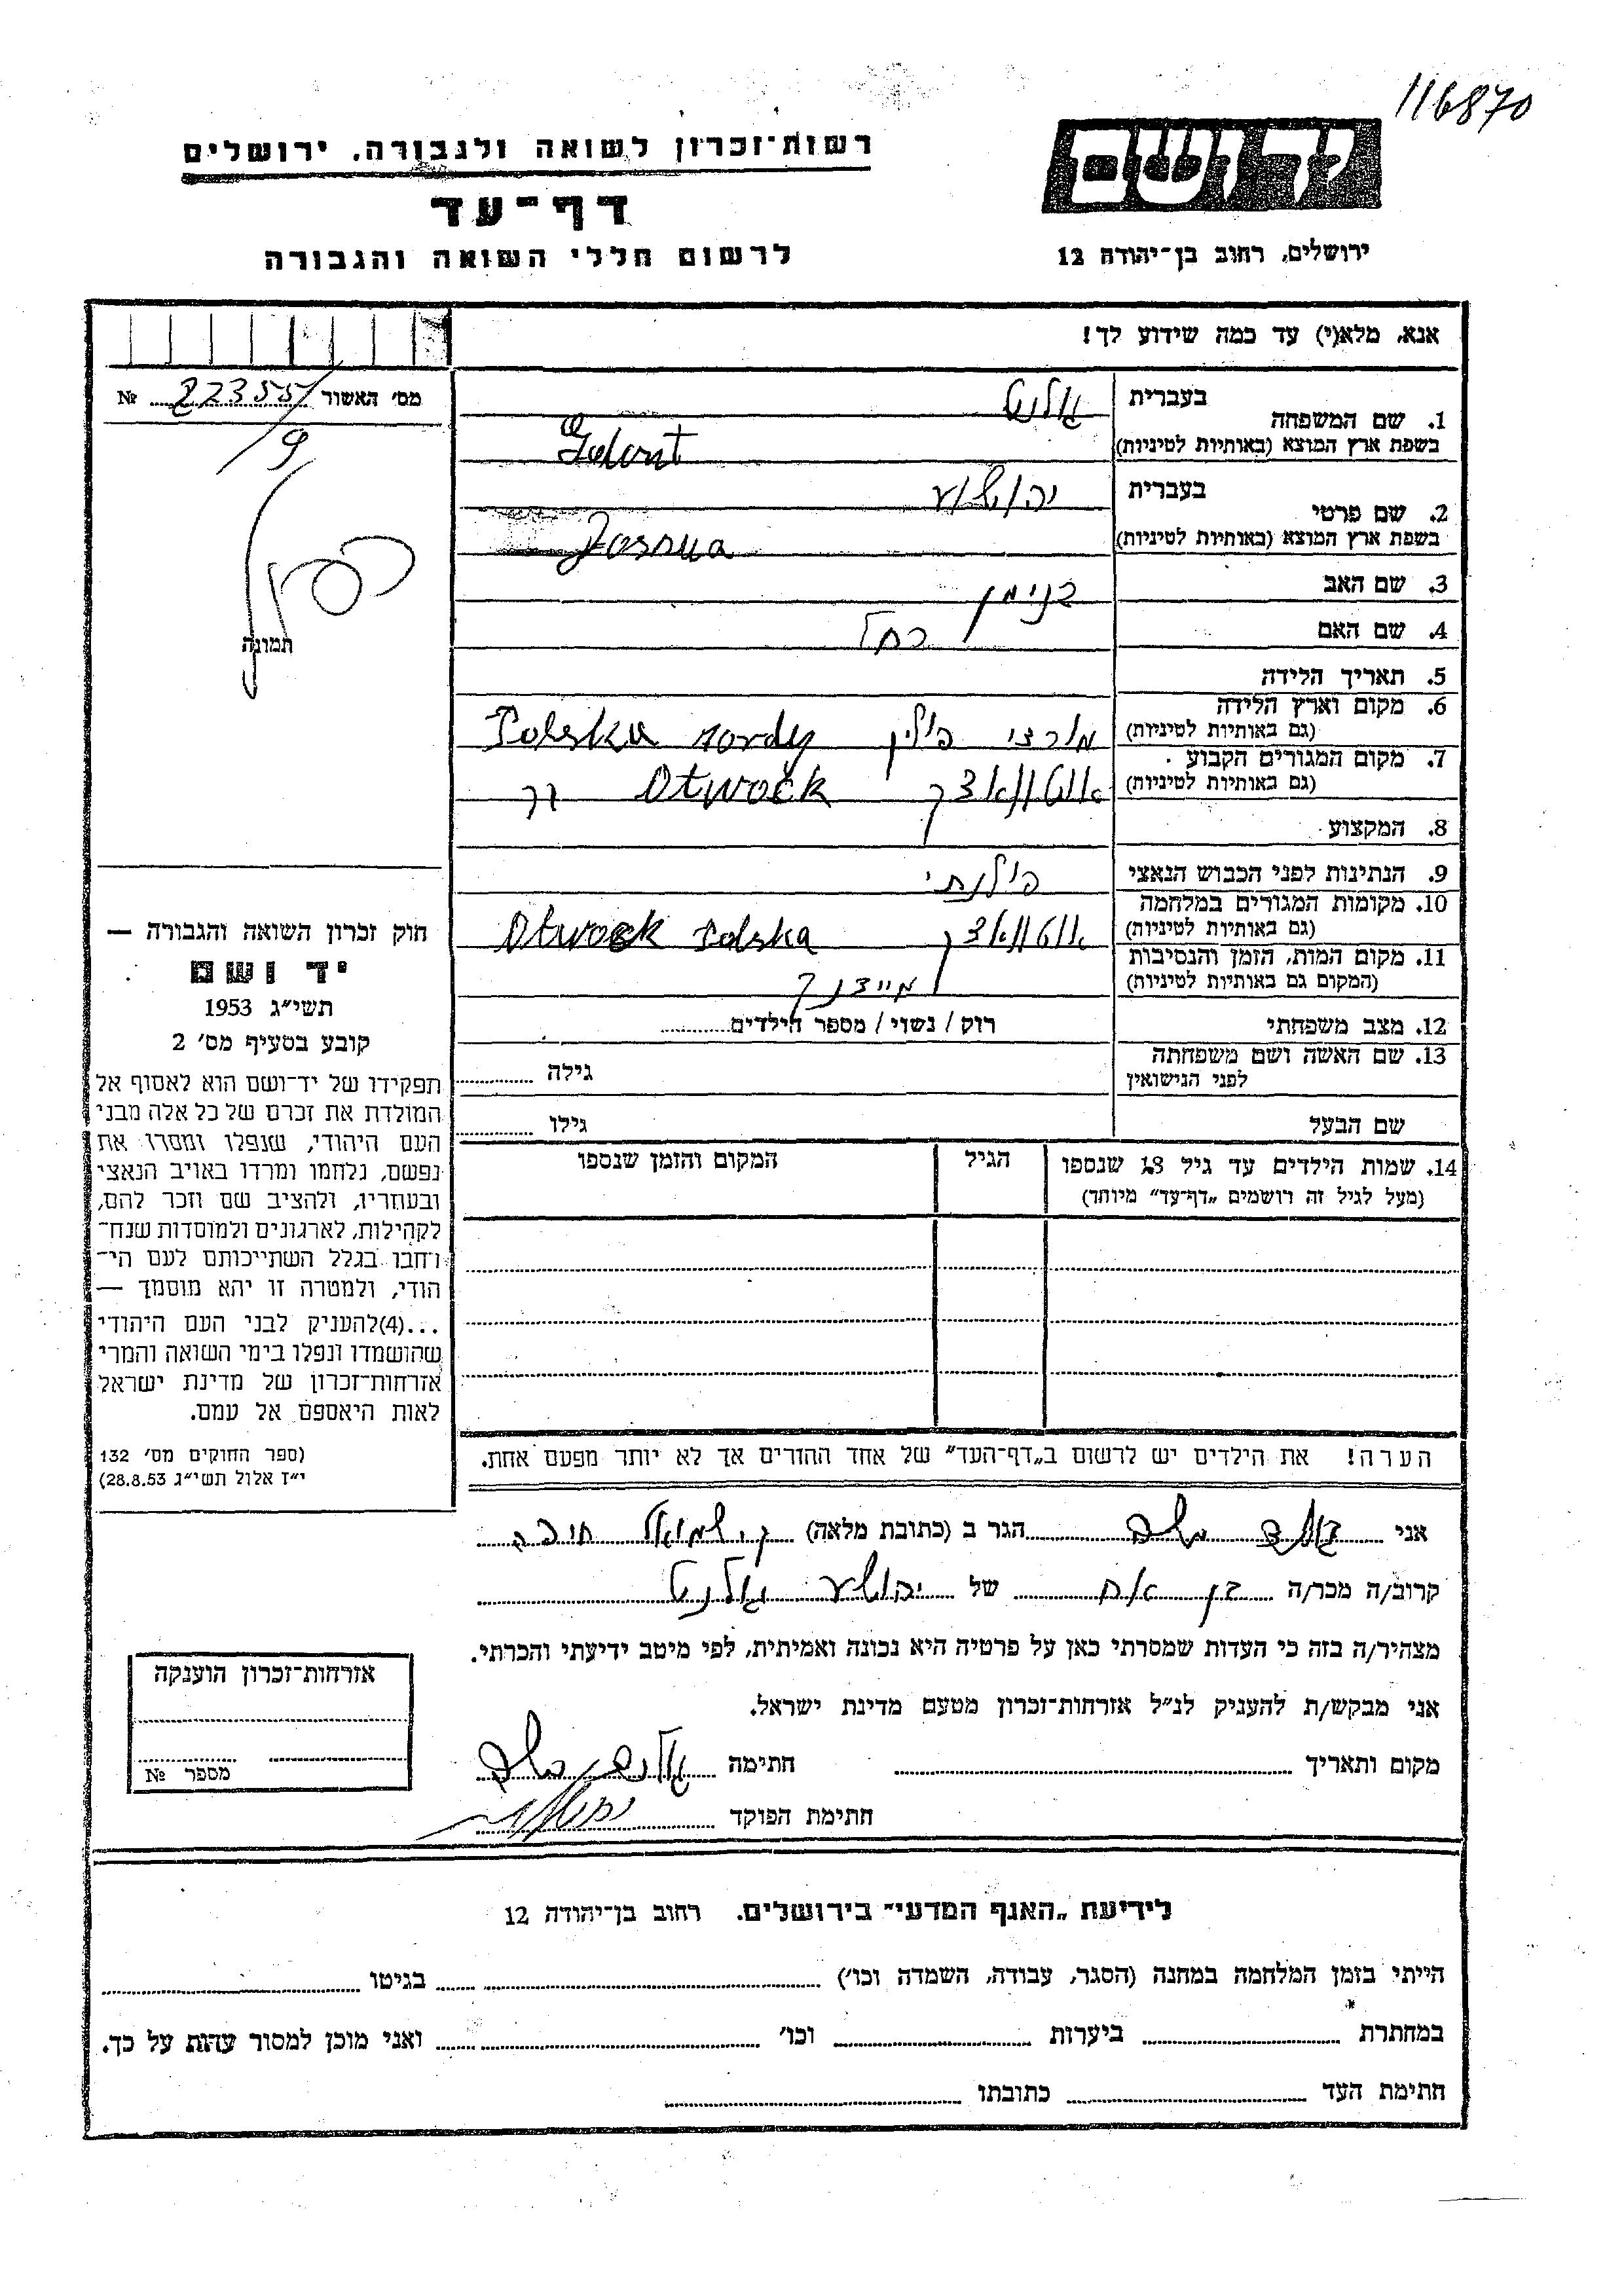 116870
יד ושם
ירושלים, רחוב בן־יהודה 12
רשות־זכרון לשואה ולגבורה, ירושלים
דף־עד
לרשום חללי השואה והגבורה
אנא, מלא(י) עד כמה שידוע לך!
מס׳ האשור 22355 №
9
תמונה
1. שם המשפחה
בעברית גולנט
בשפת ארץ המוצא (באותיות לטיניות) Golant
2. שם פרטי
בעברית יהושוע
בשפת ארץ המוצא (באותיות לטיניות) Jossua
3. שם האב בנימן
4. שם האם רחל
5. תאריך הלידה
6. מקום וארץ הלידה
(גם באותיות לטיניות) מורצי פולין Polska mordy
7. מקום המגורים הקבוע
(גם באותיות לטיניות) אוטוואצק Otwock
8. המקצוע
9. הנתינות לפני הכבוש הנאצי פולנתי
10. מקומות המגורים במלחמה
(גם באותיות לטיניות) אוטוואצק Otwock Polska
11. מקום המות, הזמן והנסיבות
(המקום גם באותיות לטיניות) מיידנק
12. מצב משפחתי רוק / נשוי / מספר הילדים
13. שם האשה ושם משפחתה
לפני הנישואין גילה
שם הבעל גילו
14. שמות הילדים עד גיל 18 שנספו
(מעל לגיל זה רושמים „דף־עד” מיוחד)
הגיל
המקום והזמן שנספו
חוק זכרון השואה והגבורה —
יד ושם
תשי״ג 1953
קובע בסעיף מס׳ 2
תפקידו של יד־ושם הוא לאסוף אל
המולדת את זכרם של כל אלה מבני
העם היהודי, שנפלו ומסרו את
נפשם, נלחמו ומרדו באויב הנאצי
ובעוזריו, ולהציב שם וזכר להם,
לקהילות, לארגונים ולמוסדות שנח־
רחבו בגלל השתייכותם לעם הי־
הודי, ולמטרה זו יהא מוסמך —
...(4)להעניק לבני העם היהודי
שהושמדו ונפלו בימי השואה והמרי
אזרחות־זכרון של מדינת ישראל
לאות היאספם אל עמם.
(ספר החוקים מס׳ 132
י״ז אלול תשי״ג 28.8.53)
הערה! את הילדים יש לרשום ב„דף־העד” של אחד ההורים אך לא יותר מפעם אחת.
אני הגר ב (כתובת מלאה) ק. שמואל חיפה
קרוב/ה מכר/ה בן אח של יהושע גולנט
מצהיר/ה בזה כי העדות שמסרתי כאן על פרטיה היא נכונה ואמיתית, לפי מיטב ידיעתי והכרתי.
אני מבקש/ת להעניק לנ״ל אזרחות־זכרון מטעם מדינת ישראל.
מקום ותאריך חתימה
חתימת הפוקד
אזרחות־זכרון הוענקה
מספר №
לידיעת „האגף המדעי” בירושלים. רחוב בן־יהודה 12
הייתי בזמן המלחמה במחנה (הסגר, עבודה, השמדה וכו׳) בגיטו
במחתרת ביערות וכו׳ ואני מוכן למסור עדות על כך.
חתימת העד כתובתו